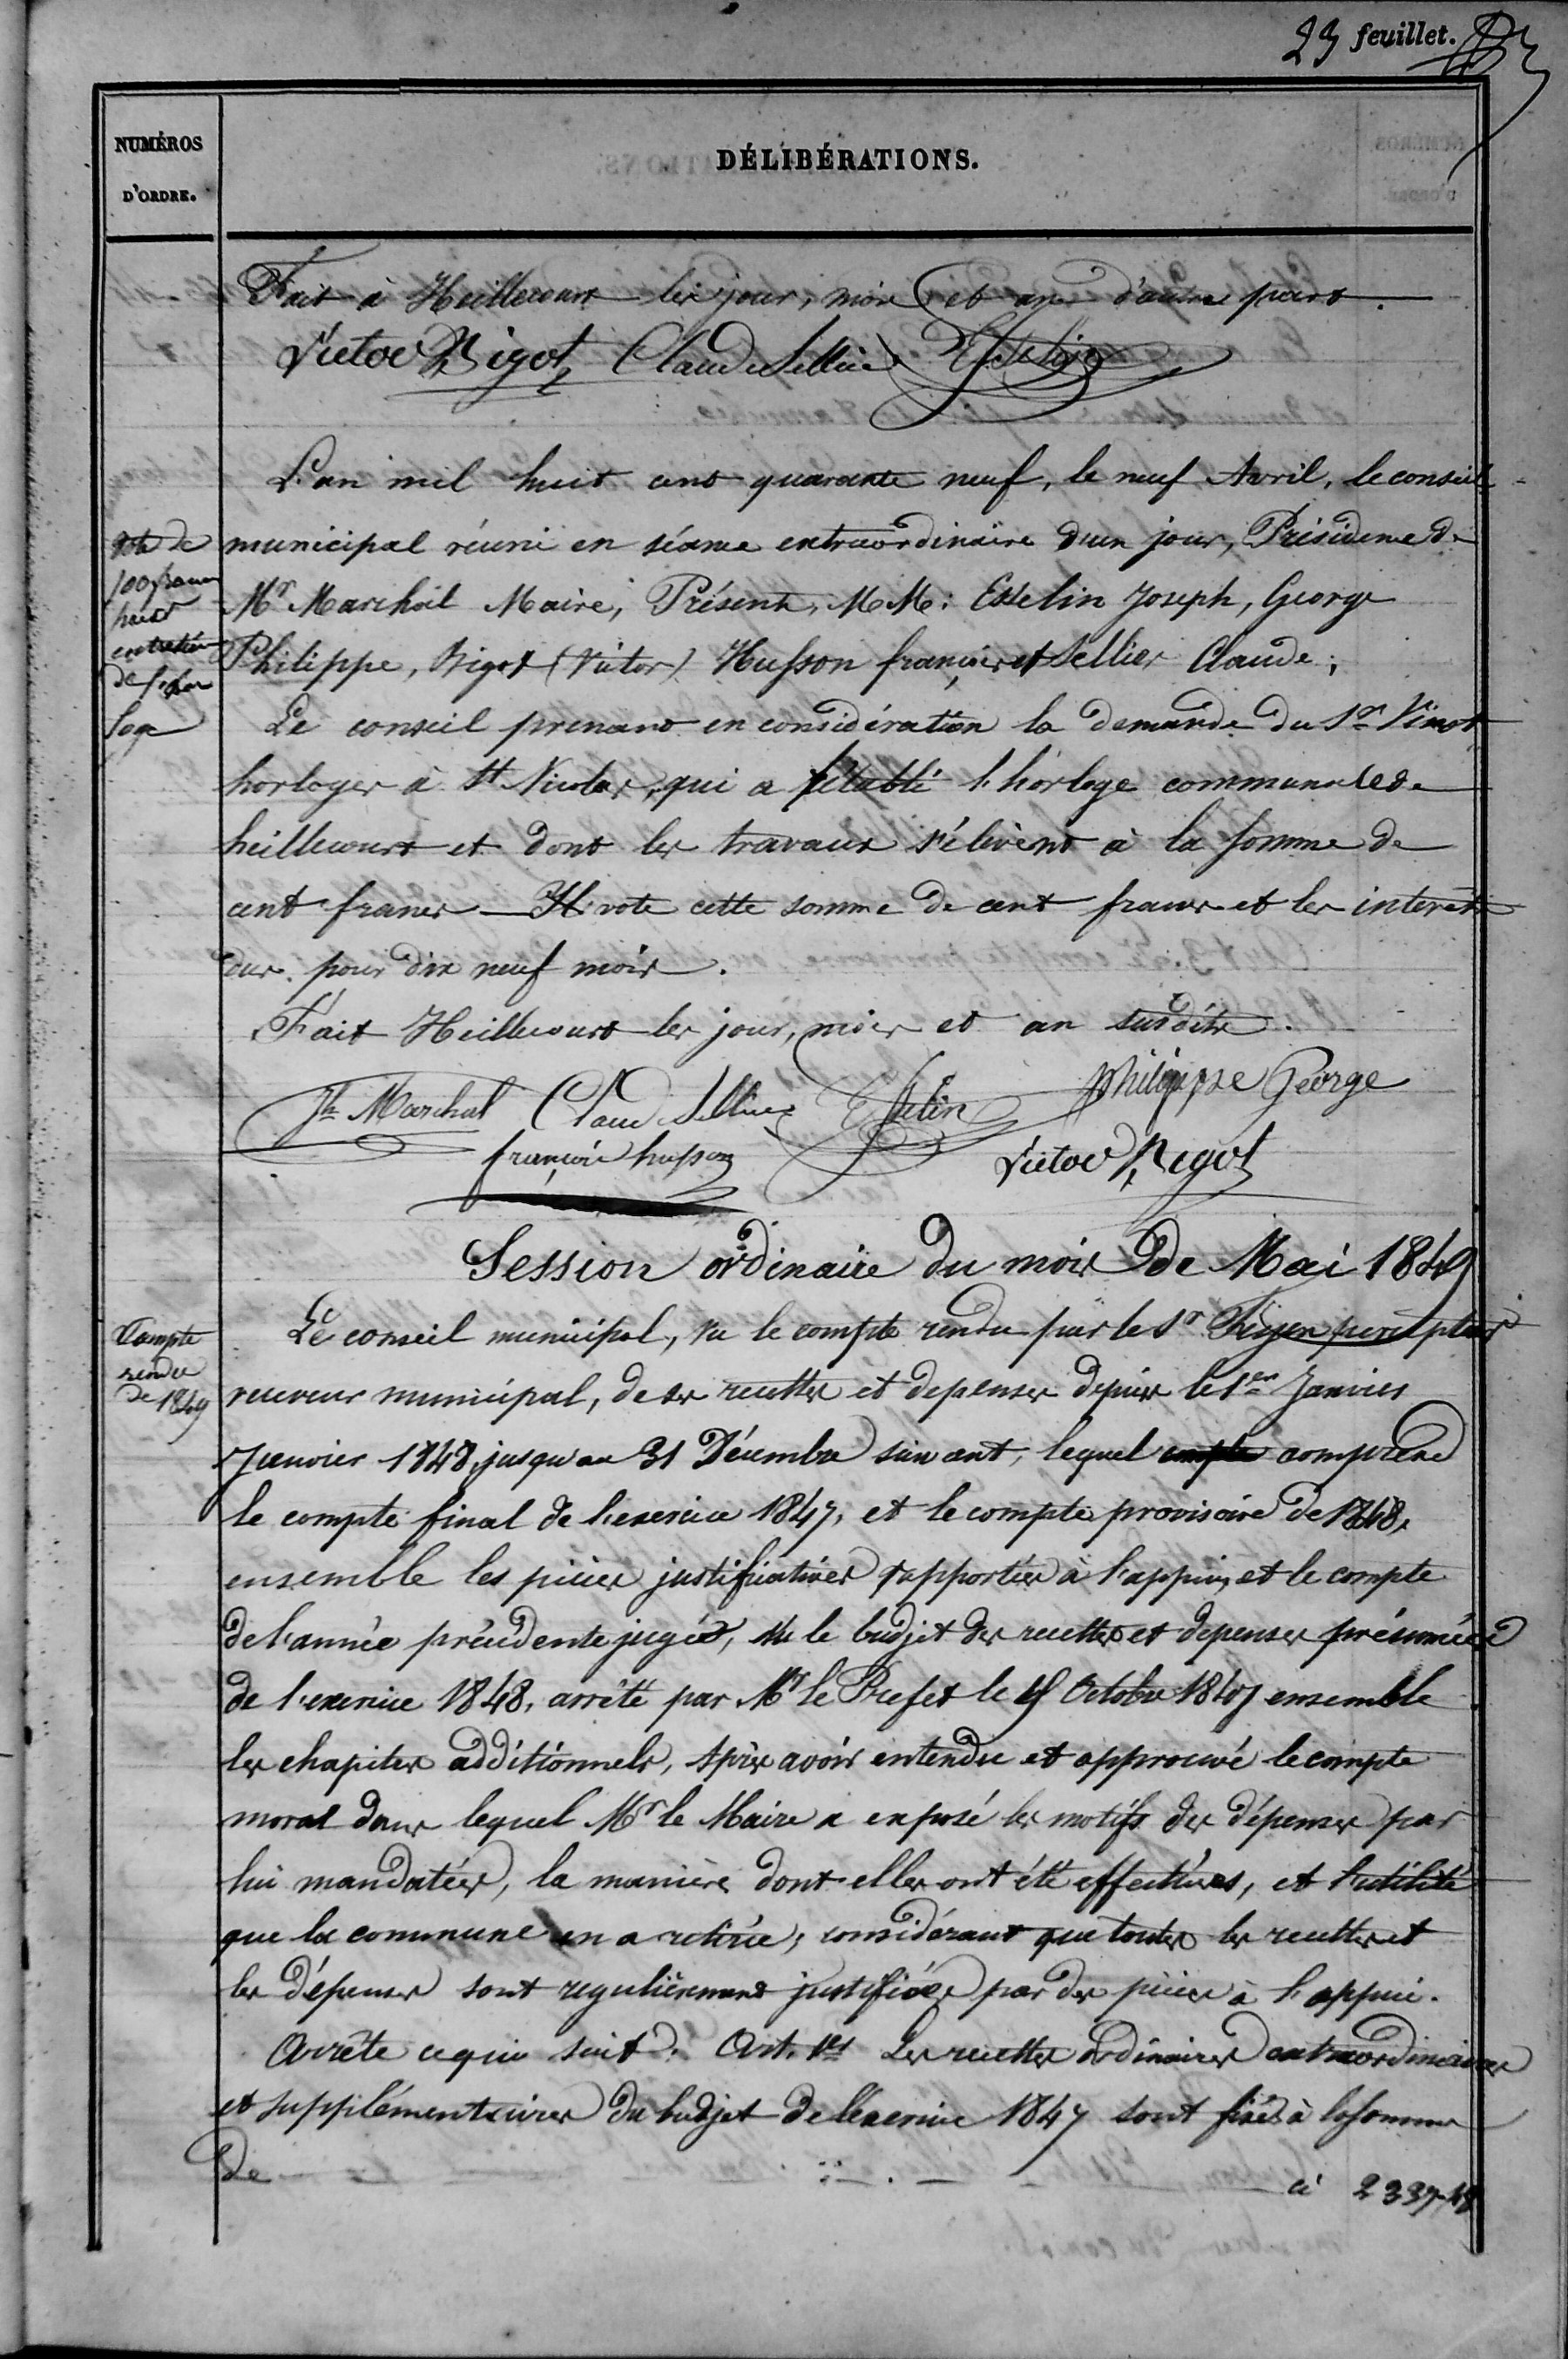 23 feuillet.
NUMÉROS
D'ORDRE.
DÉLIBÉRATIONS.
Fait à Heillecourt les jour, mois et an d'autre part.
Victor Bigot Claude Sellier Esselin
L'an mil huit cent quarante neuf, le neuf Avril, le conseil
municipal réuni en séance extraordinaire d'un jour, Présidence de
Mr Marchal Maire, Présents, MM: Esselin Joseph, George
Philippe, Bigot (Victor) Husson françois et Sellier Claude;
Vote de
100 francs
pour
entretien
de l'hor
loge
Le conseil prenant en considération la demande du Sr Vinot
horloger à St Nicolas, qui a rétabli l'horloge communale de
heillecourt et dont les travaux s'élèvent à la somme de
cent francs — Il vote cette somme de cent francs et les intérêts
dus pour dix neuf mois.
Fait Heillecourt les jour, mois et an susdits.
Jh Marchal Claude Sellier Esselin Philippe George
françois husson Victor Bigot
Session ordinaire du mois de Mai 1849
Compte
rendu
de 1849
Le conseil municipal, vu le compte rendu par le Sr percepteur
receveur municipal, de ses recettes et depenses depuis le 1er Janvier
Janvier 1848, jusqu'au 31 Décembre suivant, lequel compte comprend
le compte final de l'exercice 1847, et le compte provisoire de 1848,
ensemble les pièces justificatives rapportées à l'appui, et le compte
de l'année précédente jugée, vu le budjet des recettes et depenses présumées
de l'exercice 1848, arrêté par Mr le Prefet le Octobre 1847 ensemble
les chapitres additionnels, après avoir entendu et approuvé le compte
moral dans lequel Mr le Maire a exposé les motifs des dépenses par
lui mandatées, la manière dont elles ont été effectuées, et l'utilité
que la commune en a retirée; considérant que toutes les recettes et
les dépenses sont regulièrement justifiées par des pièces à l'appui.
Arrête ce qui suit: Art. 1er Les recettes ordinaires extraordinaires
et supplémentaires du budjet de l'exercice 1847 sont fixées à la somme
de ci 2337-48